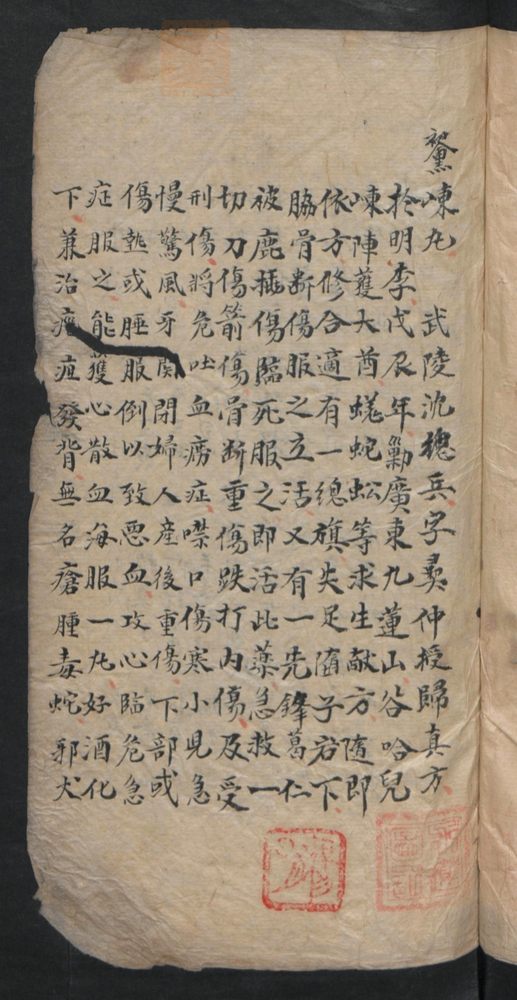 嗽丸　武陵沈總兵字彛仲授歸真方
於明季戊辰年勦廣東九蓮山谷哈兒
嗽陣獲大酋蟒蛇蚣等求生献方隨即
依方修合適有一總旗失足墮子岩下
脇骨断傷服之立活又有一先鋒葛仁
被鹿插傷臨死服之即活此藥急救一
切刀傷箭傷骨断重傷跌打内傷及受
刑傷将危吐血痨症噤口傷寒小児急
慢驚風牙関閉婦人産後重傷下部或
傷熱或腄服倒以致悪血攻心臨危急
症服之能獲心散血海服一丸好酒化
下兼治疽發背無名瘡腫毒蛇邪犬